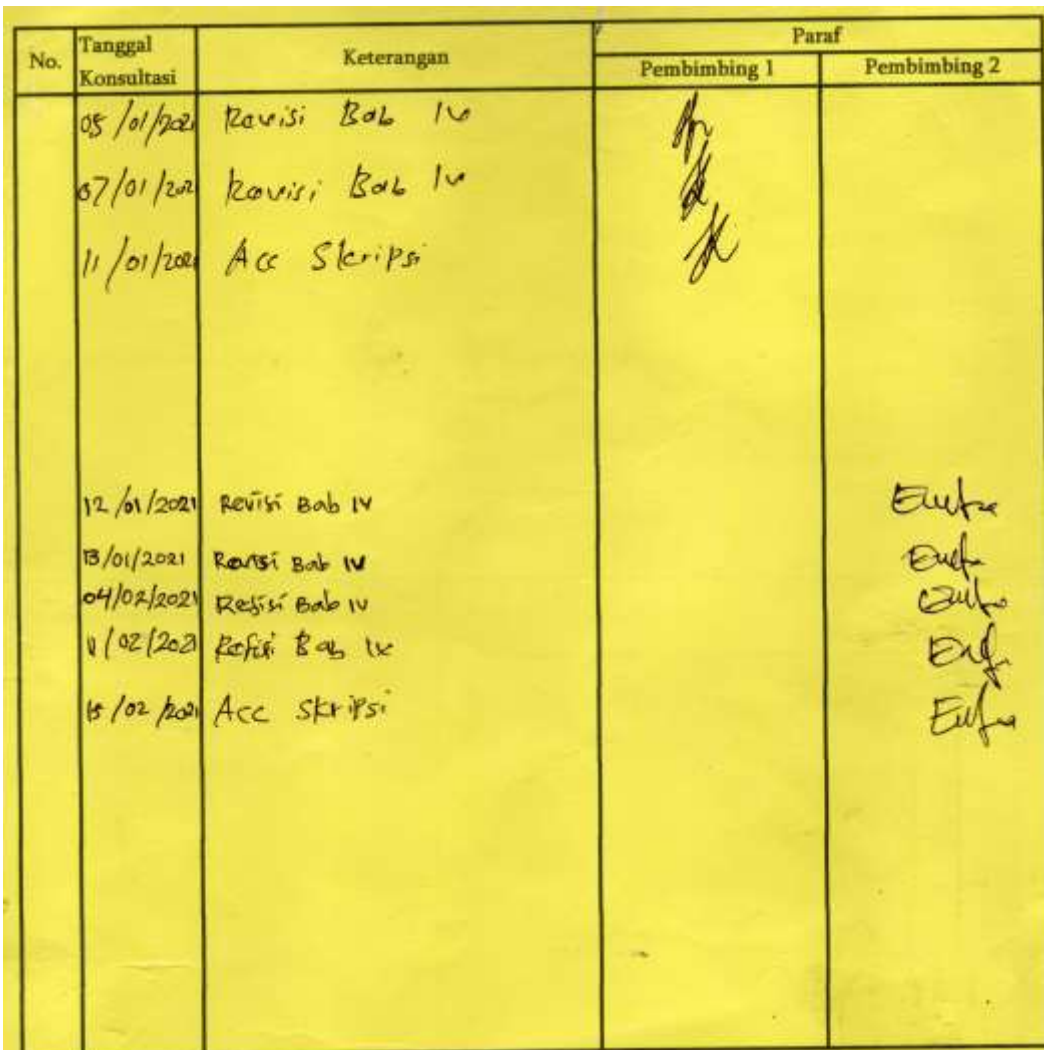 No. Tanggal Konsultasi Keterangan Paraf
Pembimbing 1 Pembimbing 2
05/01/2021 Revisi Bab IV
07/01/2021 Revisi Bab IV
11/01/2021 Acc Skripsi
12/01/2021 Revisi Bab IV
13/01/2021 Revisi Bab IV
04/02/2021 Refisi Bab IV
11/02/2021 Refisi Bab IV
15/02/2021 Acc Skripsi